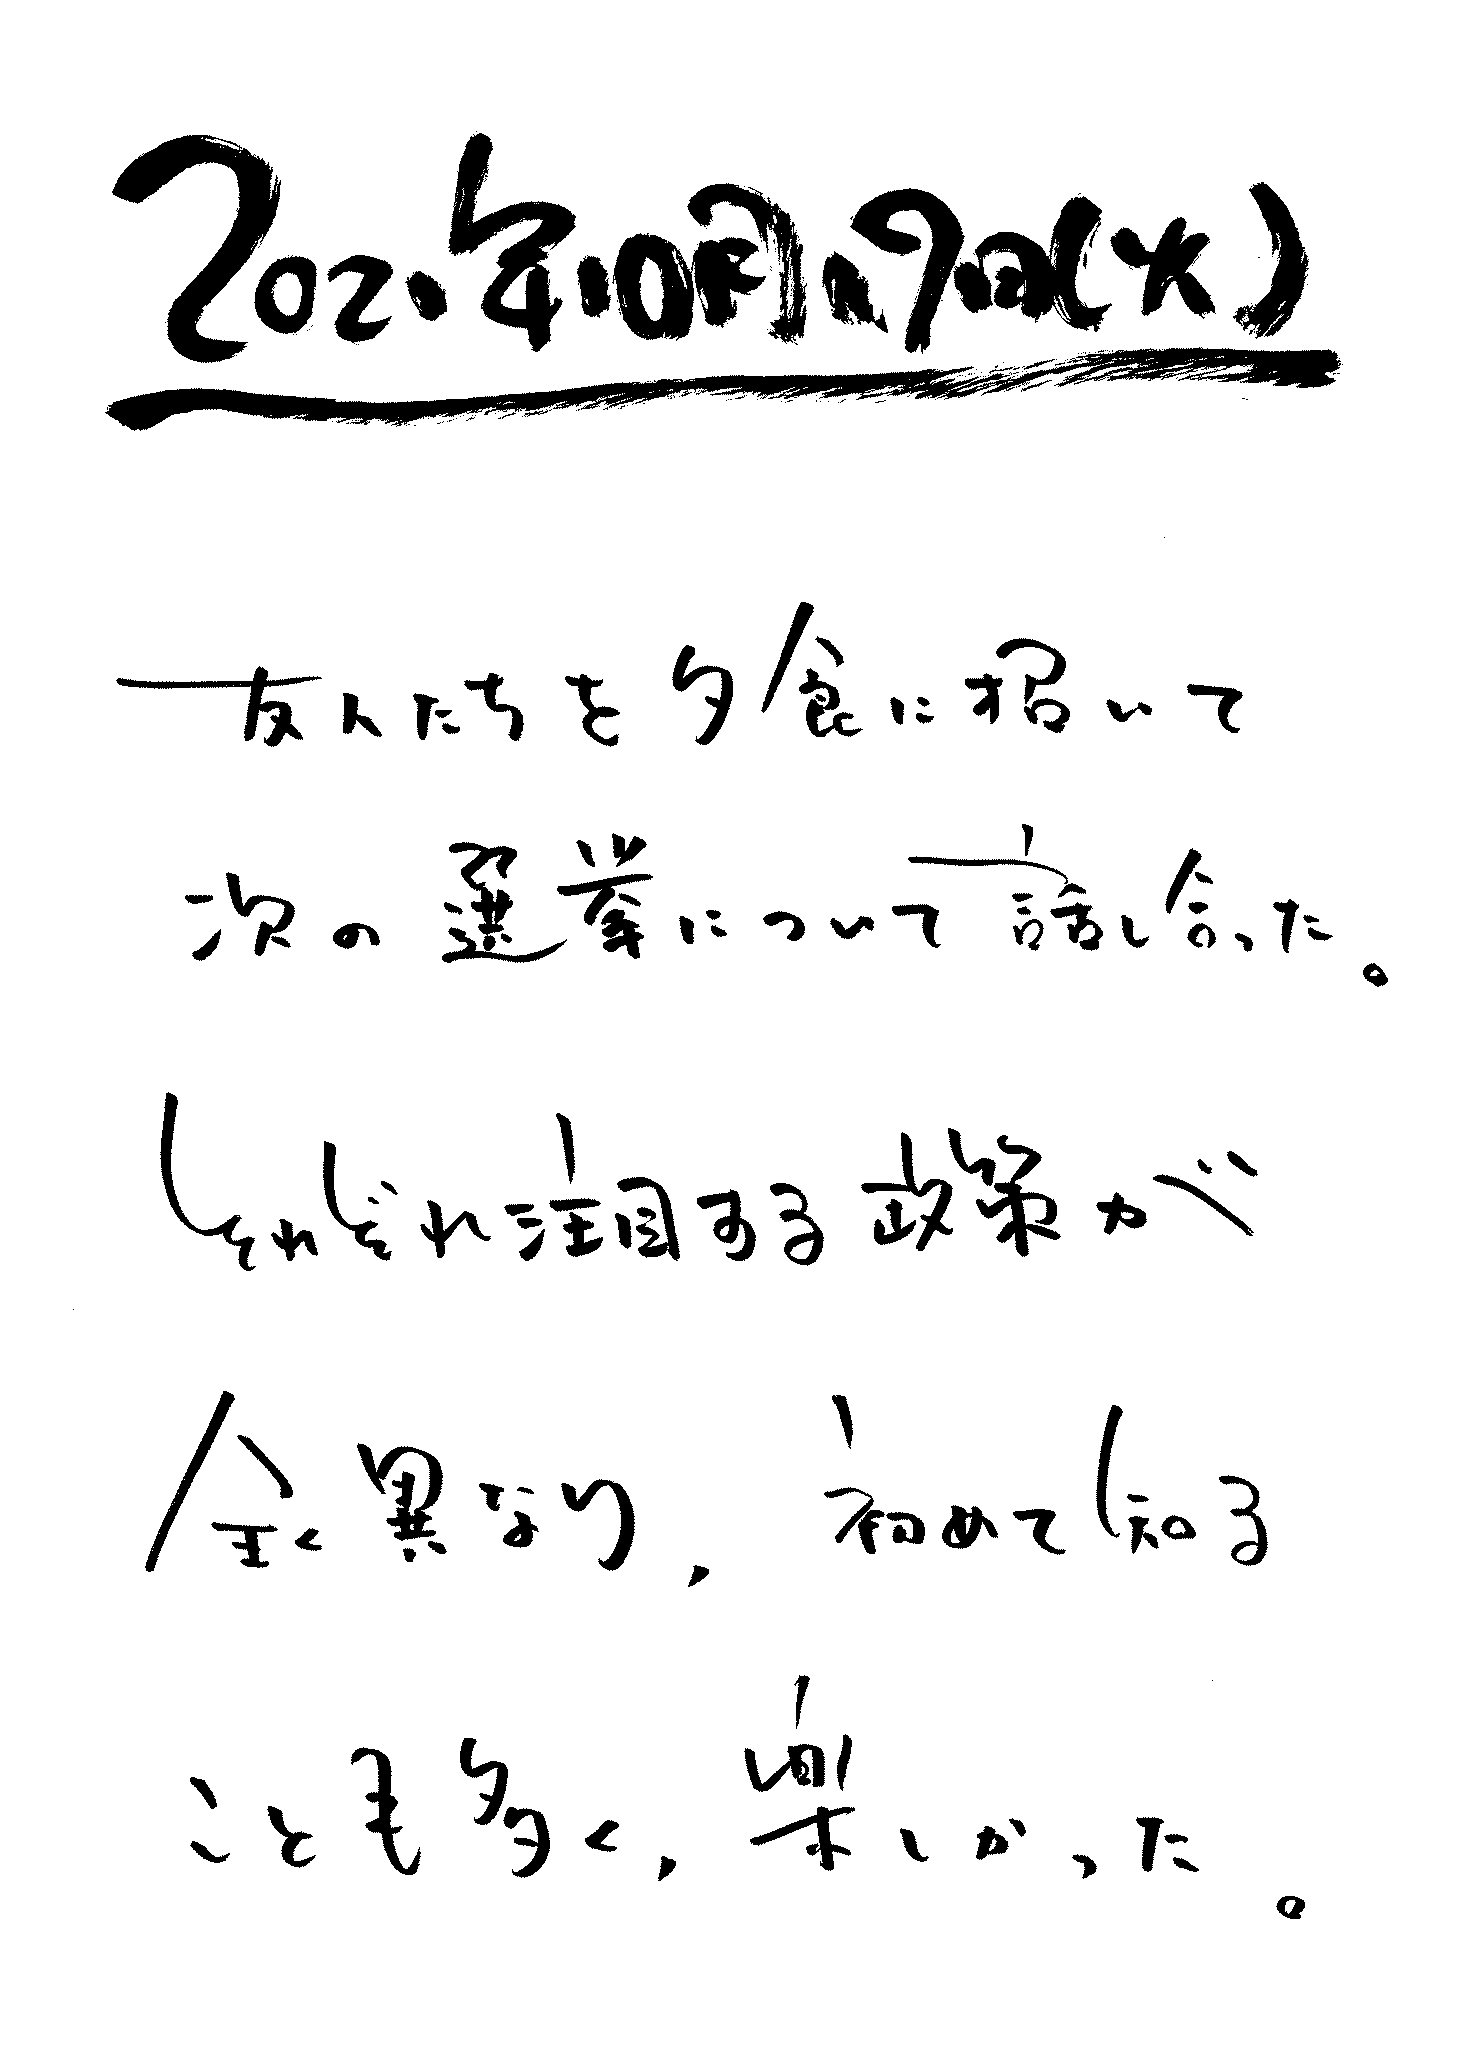 2021年10月19日(火)
友人たちを夕食に招いて
次の選挙について話し合った。
それぞれ注目する政策が
全く異なり、初めて知る
ことも多く、楽しかった。